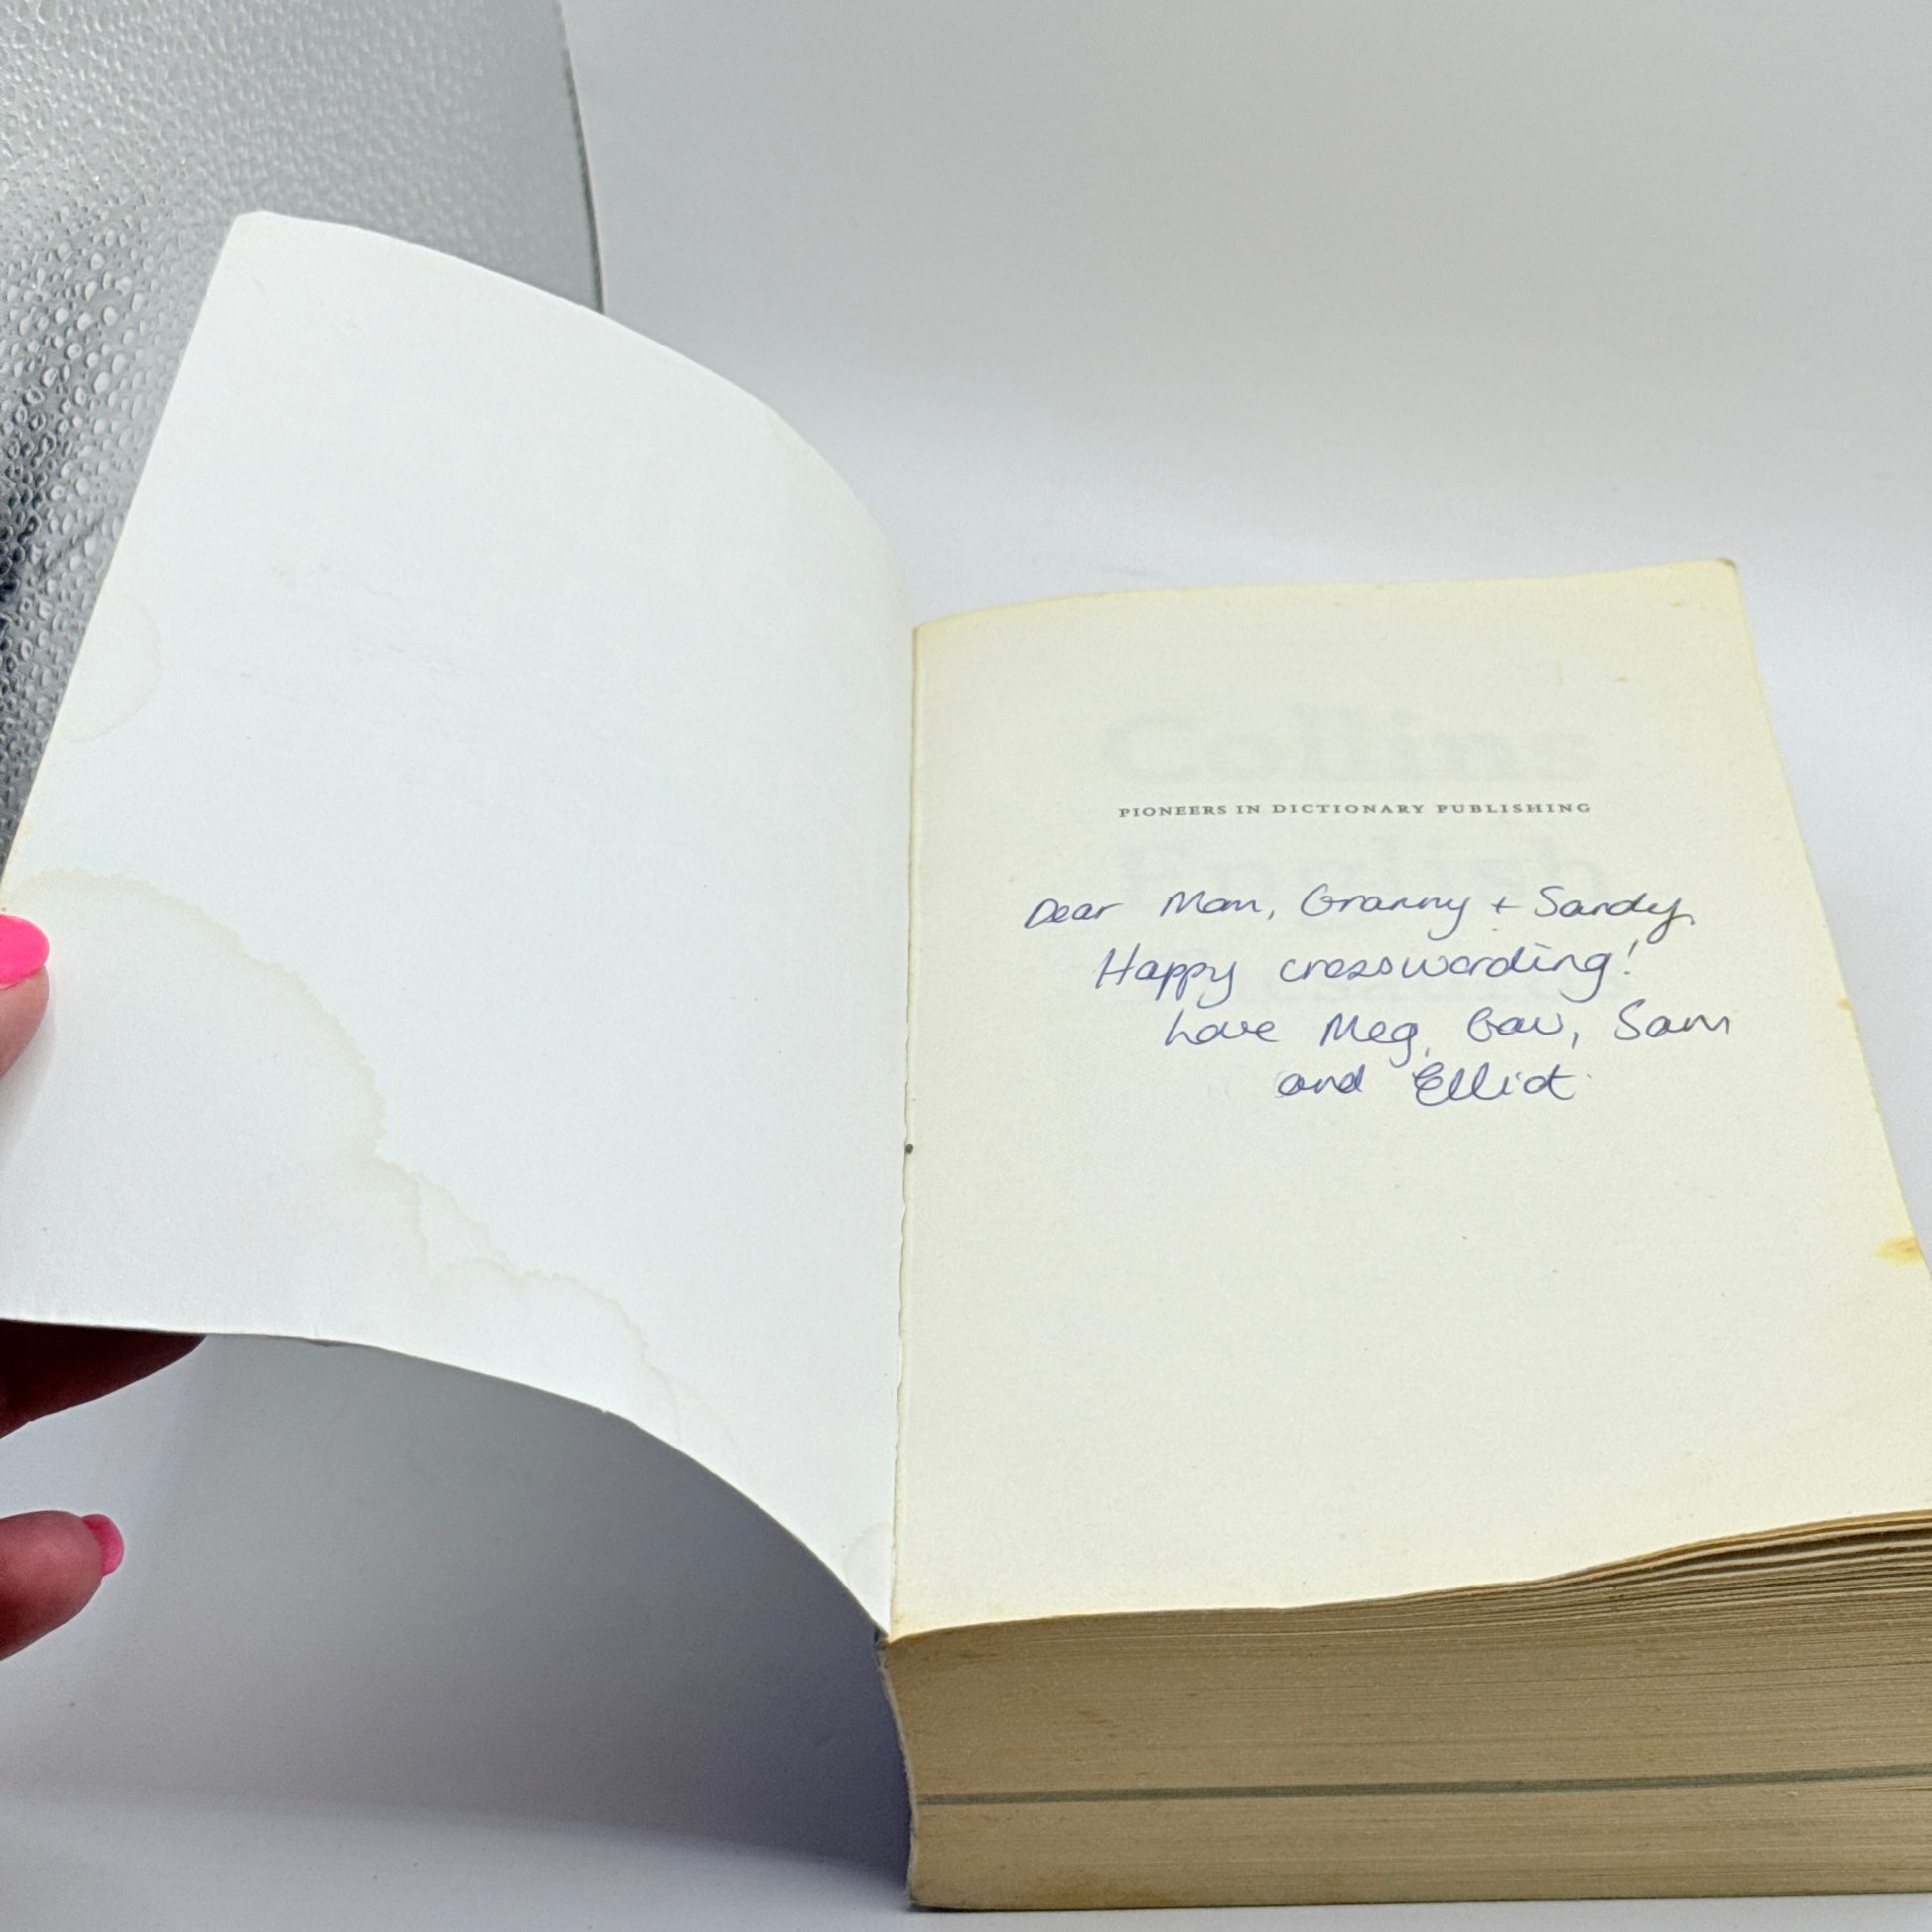 Collins
PIONEERS IN DICTIONARY PUBLISHING
English
Dear Mom, Granny + Sandy,
Happy crosswording!
Love Meg, Gav, Sam
and Elliot.